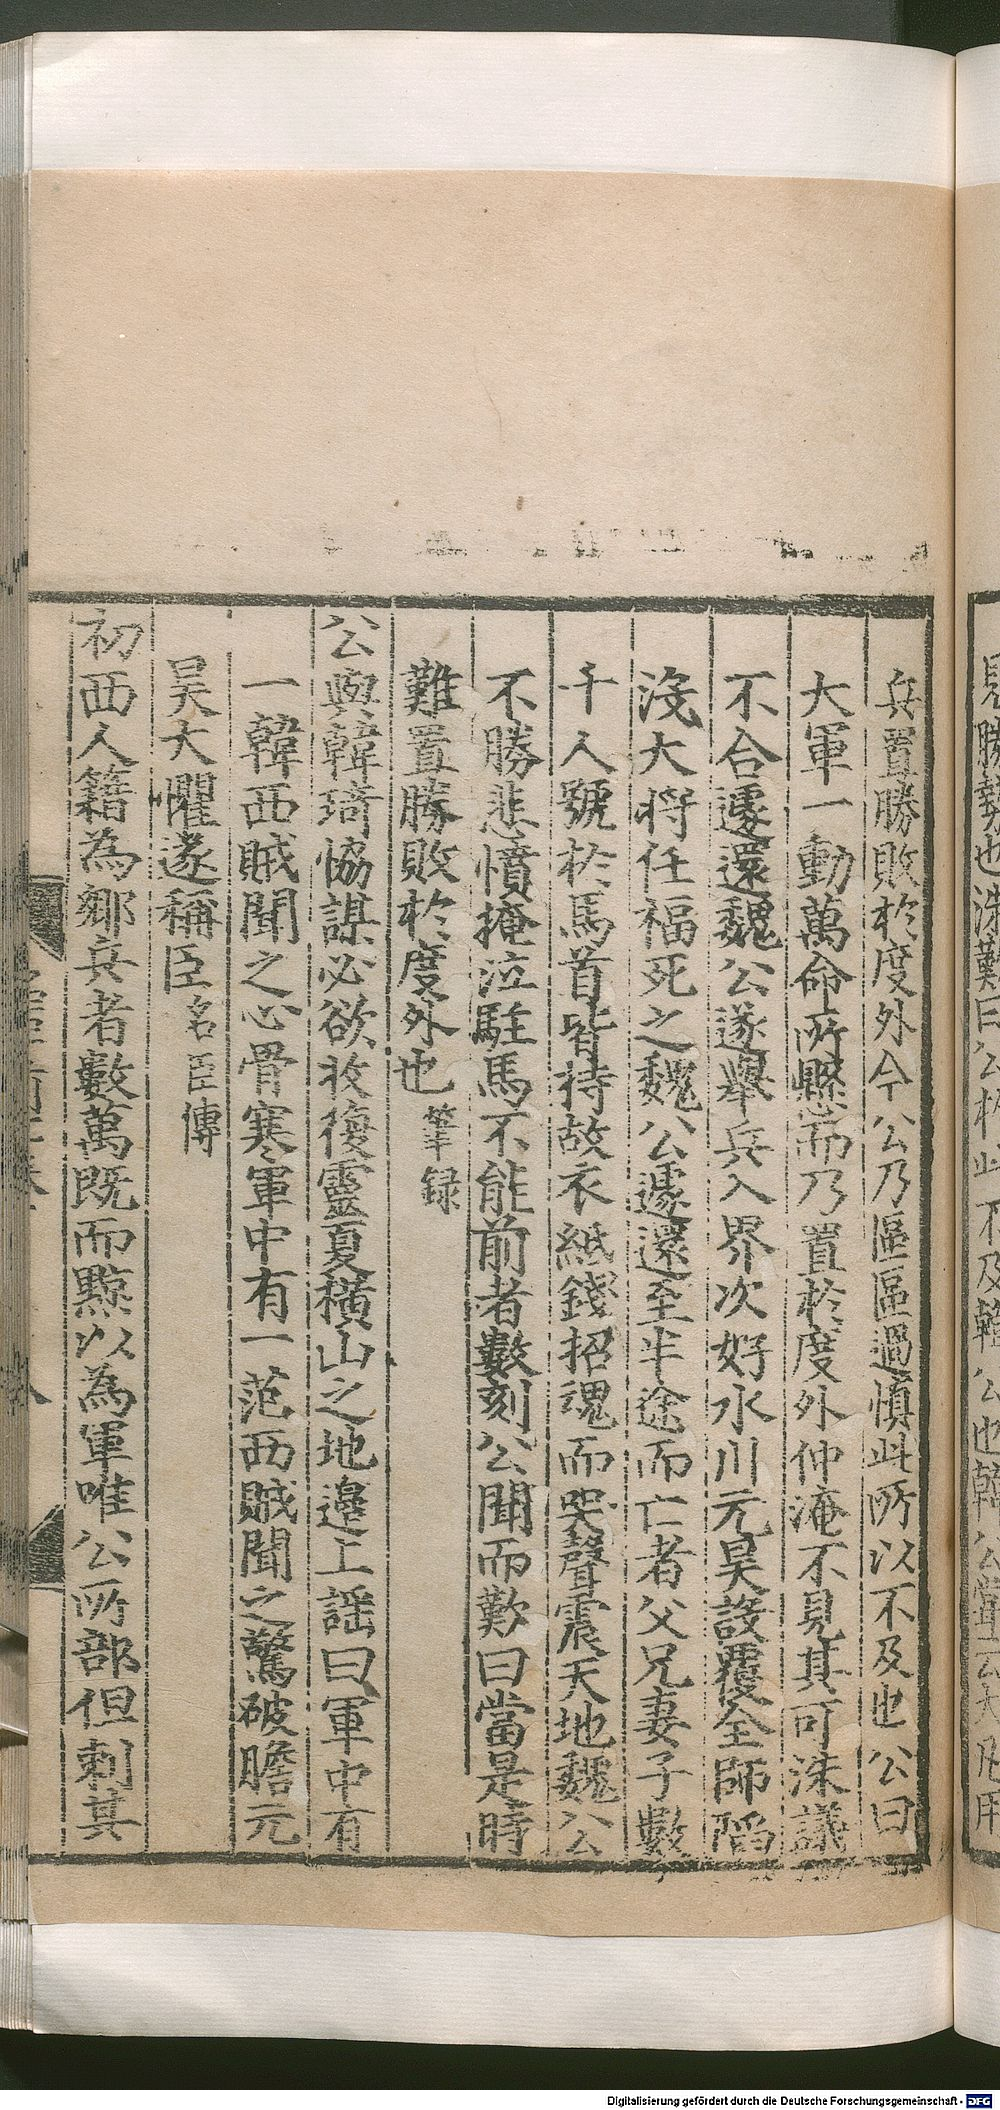 見勝勢也洙歎曰公於此不及韓公也韓公嘗云大凡用
兵置勝敗於度外今公乃區區過慎此所以不及也公曰
大軍一動萬命所懸而乃置於度外仲淹不見其可洙議
不合遽還魏公遂舉兵入界次好水川元昊設覆全師陷
沒大將任福死之魏公遽還至半途而亡者父兄妻子數
千人號於馬首皆持故衣紙錢招魂而哭聲震天地魏公
不勝悲憤掩泣駐馬不能前者數刻公聞而歎曰當是時
難置勝敗於度外也筆録
公與韓琦恊謀必欲收復靈夏橫山之地邉上謡曰軍中有
一韓西賊聞之心骨寒軍中有一范西賊聞之驚破膽元
昊大懼遂稱臣名臣傳
初西人籍為鄉兵者數萬既而黥以為軍唯公所部但刺其
Digitalisierung gefördert durch die Deutsche Forschungsgemeinschaft - DFG